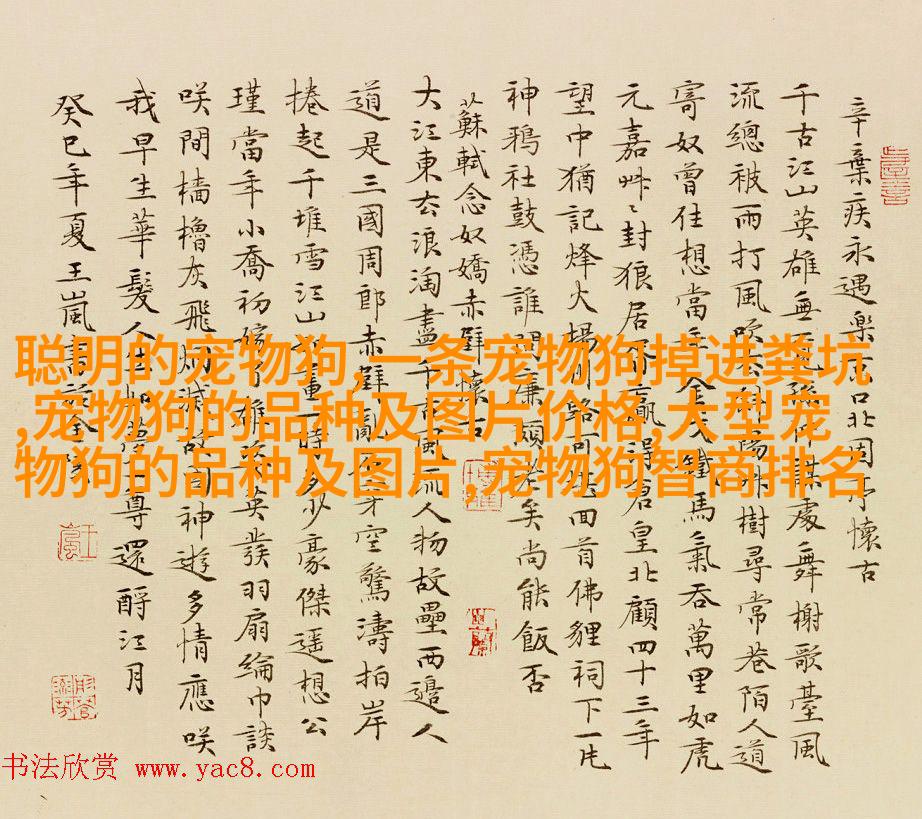 辛棄疾永遇樂京口北固亭懷古
千古江山英雄無覓孫仲謀處舞榭歌臺風
流總被雨打風吹去斜陽艸樹尋常巷陌人道
寄奴曾住想當年金戈鐵馬氣吞萬里如虎
元嘉艸〻封狼居胥贏得倉皇北顧四十三年
望中猶記烽火揚州路可堪回首佛貍祠下一片
神鴉社鼓憑誰問廉頗老矣尚能飯否
蘇軾念奴嬌赤壁懷古
大江東去浪淘盡千古風流人物故壘西邊人
道是三國周郎赤壁亂石穿空驚濤拍岸
捲起千堆雪江山如畫一時多少豪傑遥想公
瑾當年小喬初嫁了雄姿英發羽扇綸巾談
咲間檣櫓灰飛煙滅故國神遊多情應咲
我早生華髮人生如夢一尊還酹江月
癸巳年夏王嵐書於
聪明的宠物狗,一条宠物狗掉进粪坑
,宠物狗的品种及图片价格,大型宠
物狗的品种及图片,宠物狗智商排名
书法欣赏 www.yac8.com